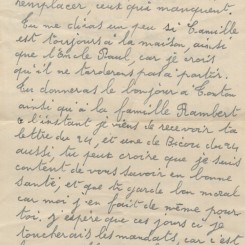 remplacer, ceux qui manquent.
Tu me diras un peu si Camille
est toujours à la maison, ainsi
que l'Encle Paul, car je crois
qu'il ne tarderont pas à partir.
Tu donneras le bonjour à Tonton
ainsi qu'à la famille Rambert
a l'instant je viens de recevoir ta
lettre du 24, et une de Bicou du 24
aussi, tu peux croire que je suis
content de vous savoir en bonne
santé, et que tu garde bon moral
car moi j'en fait de même pour
toi, j'espère que ces jours ci je
toucherais les mandats, car c'est